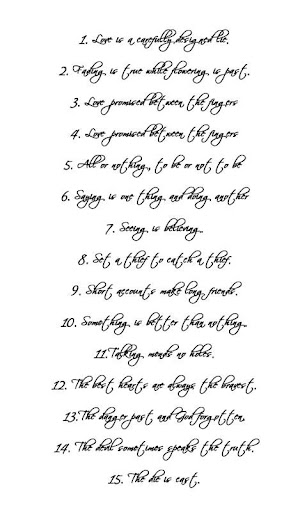 1. Love is a carefully designed lie.
2. Fading is true while flowering is past.
3. Love promised between the fingers
4. Love promised between the fingers
5. All or nothing, to be or not to be
6. Saying is one thing and doing another
7. Seeing is believing..
8. Set a thief to catch a thief.
9. Short accounts make long friends.
10. Something is better than nothing..
11.Talking mends no holes.
12. The best hearts are always the bravest.
13.The danger past and God forgotten.
14. The devil sometimes speaks the truth.
15. The die is cast.